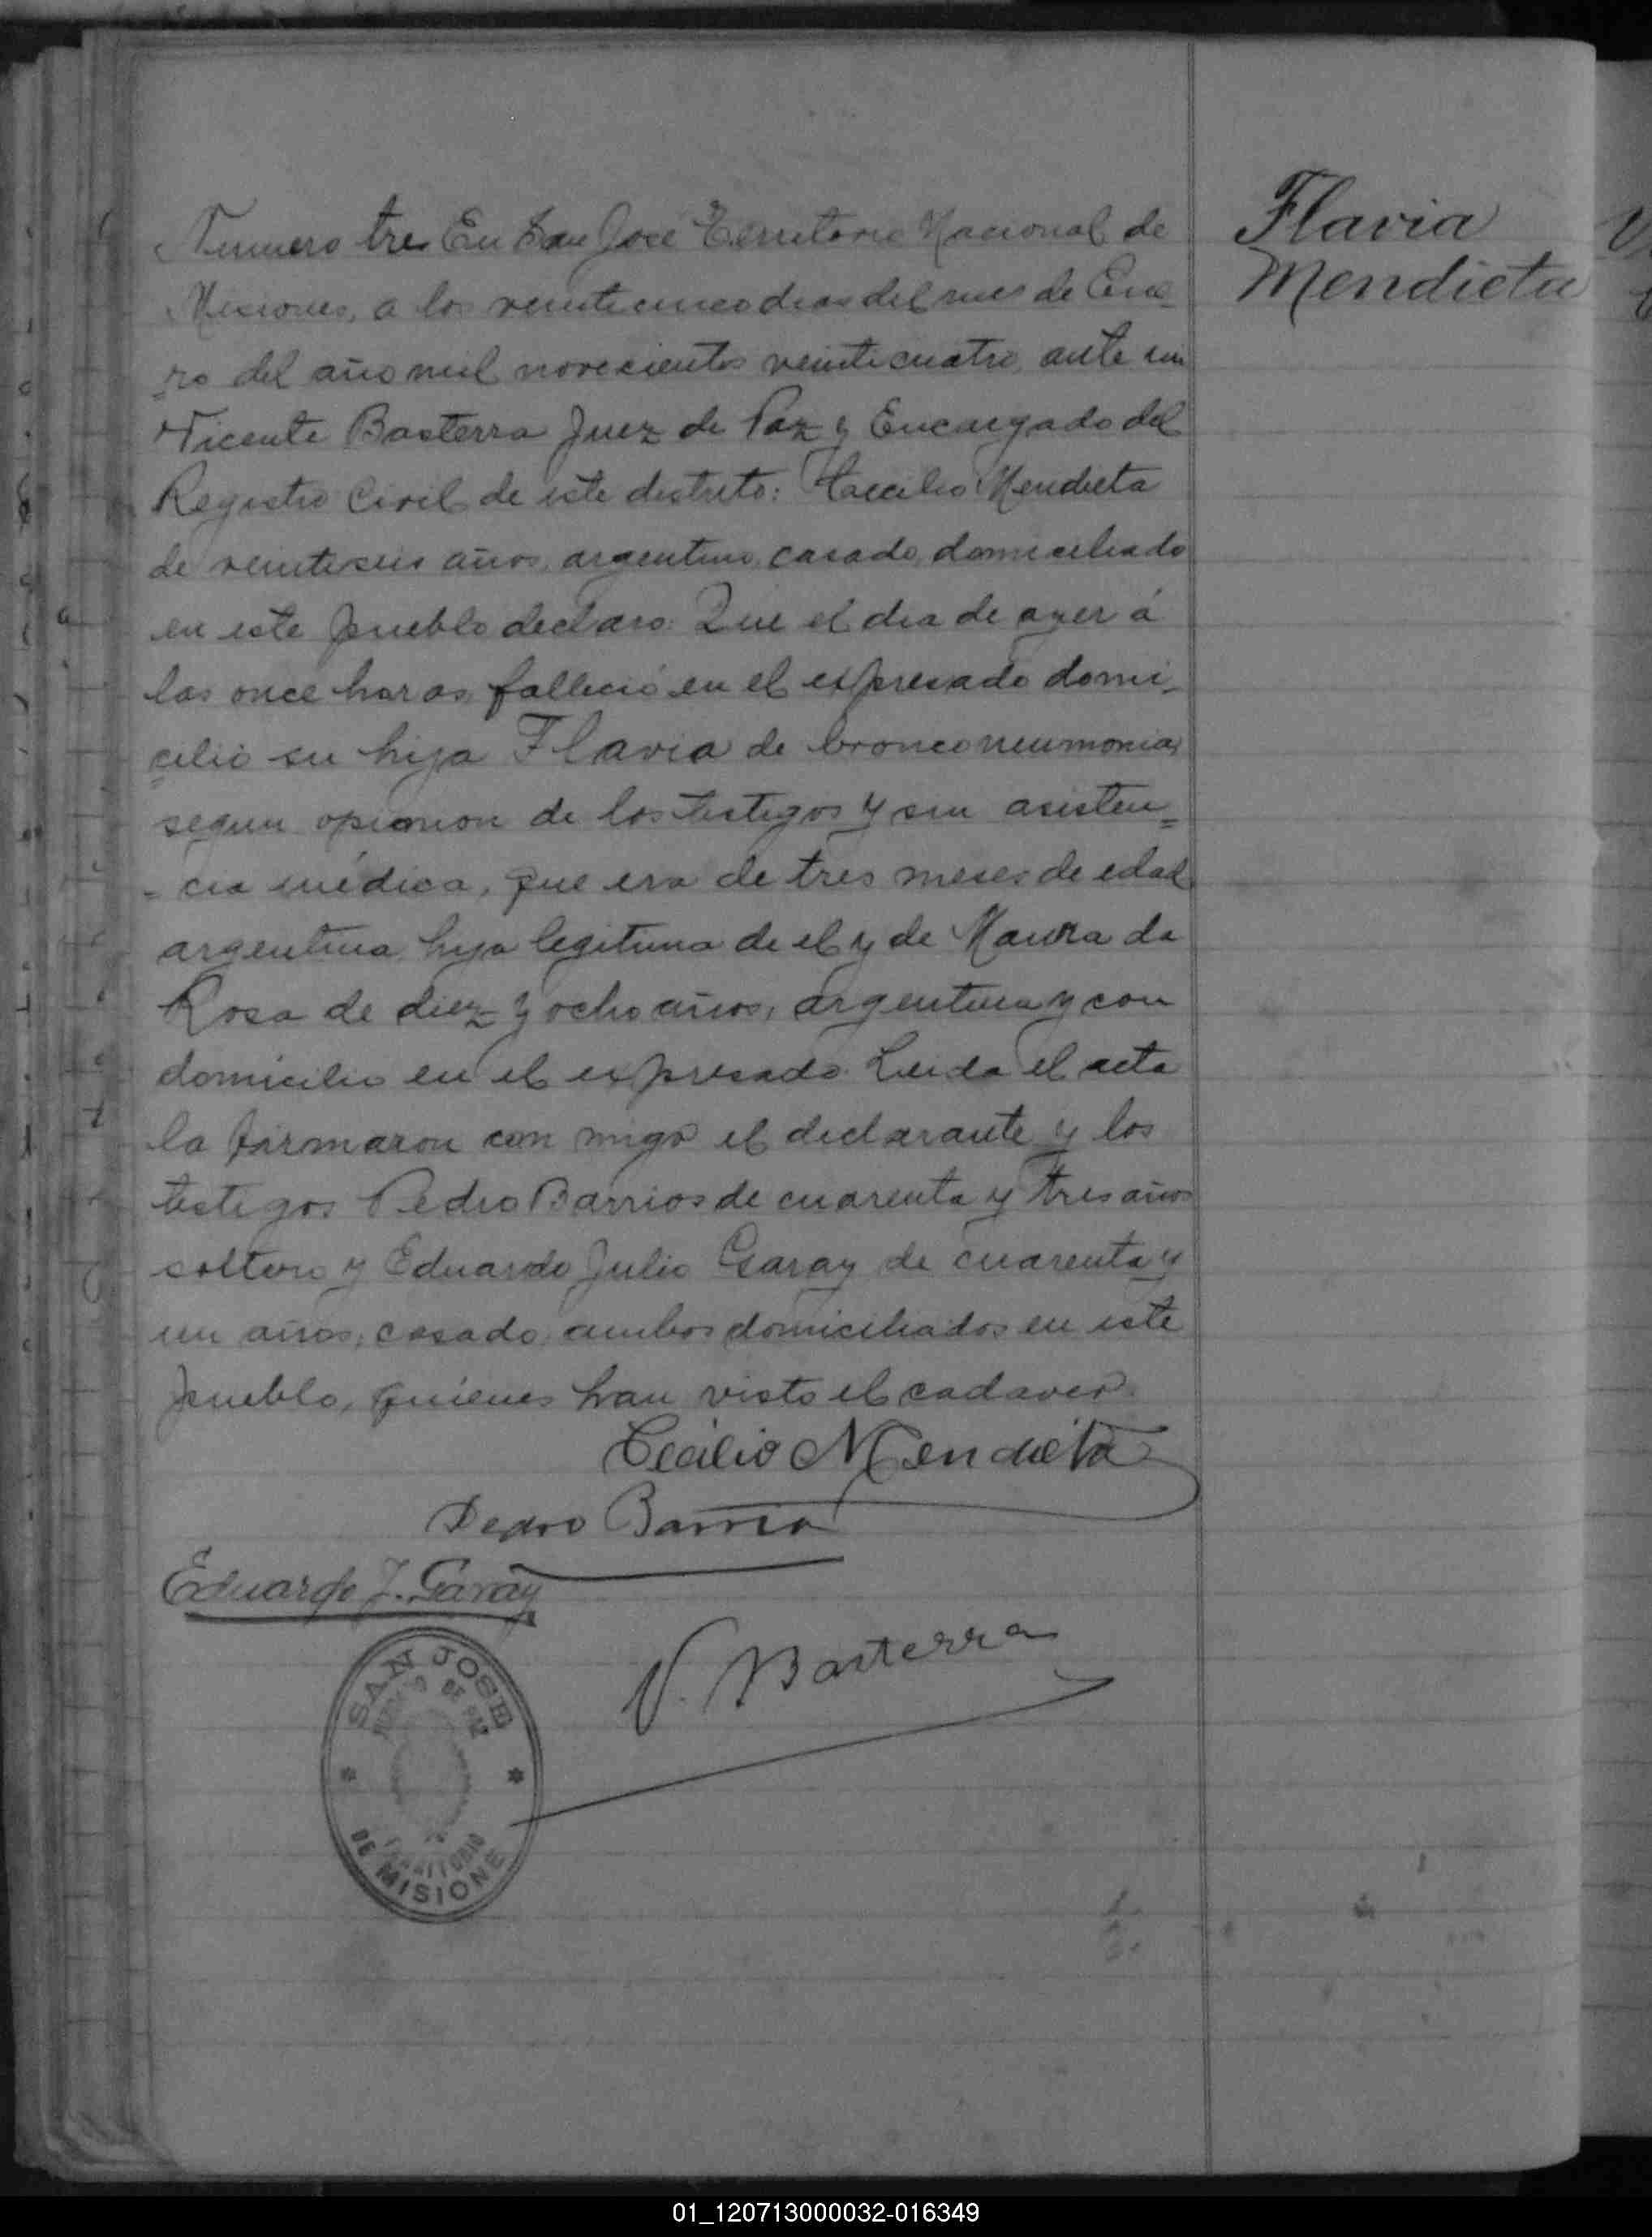 Flavia
Mendieta
Numero tres En San José Territorio Nacional de
Misiones, a los veinticinco dias del mes de Ene-
ro del año mil novecientos veinticuatro, ante mi
Vicente Basterra Juez de Paz y Encargado del
Registro Civil de este distrito: Cecilio Mendieta
de veintiseis años, argentino, casado, domiciliado
en este pueblo declaro: Que el dia de ayer á
las once horas falleció en el expresado domi-
cilio su hija Flavia de bronconeumonia,
segun opinion de los testigos y sin asisten=
-cia médica, que era de tres meses de edad
argentina, hija legitima de el y de Maura da
Rosa de diez y ocho años, argentina y con
domicilio en el expresado. Leida el acta
la firmaron con migo el declarante y los
testigos Pedro Barrios de cuarenta y tres años
soltero y Eduardo Julio Garay de cuarenta y
un años, casado, ambos domiciliados en este
pueblo, quienes han visto el cadaver.
Cecilio Mendieta
Pedro Barrio
Eduardo J. Garay
V. Basterra
SAN JOSE
JUZGADO DE PAZ
TERRITORIO
DE MISIONE
01_120713000032-016349